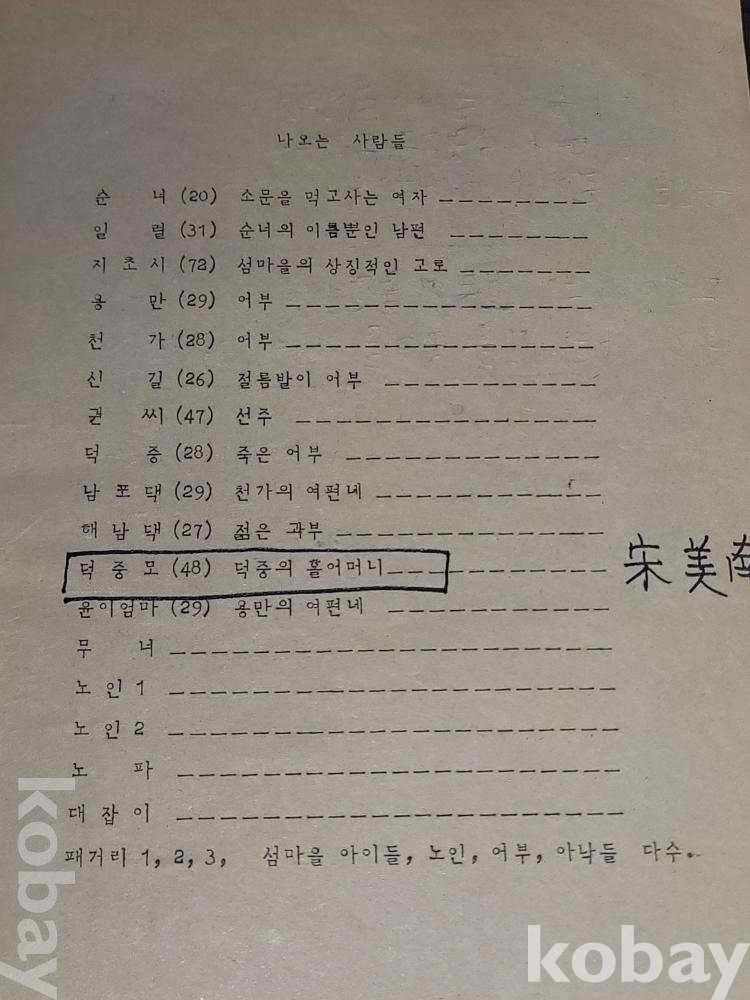 나오는 사람들
순 녀 (20) 소문을 먹고사는 여자 ---------
일 럴 (31) 순녀의 이름뿐인 남편 ---------
지 초 시 (72) 섬마을의 상징적인 고로 -------
용 만 (29) 어부 -----------------
천 가 (28) 어부 -----------------
신 길 (26) 절름발이 어부 ------------
권 씨 (47) 선주 -----------------
덕 중 (28) 죽은 어부 --------------
남 포 댁 (29) 천가의 여편네 ------------
해 남 댁 (27) 젊은 과부 --------------
덕 중 모 (48) 덕중의 홀어머니 ------------ 宋美南
윤이엄마 (29) 용만의 여편네 ------------
무 녀 ------------------------
노 인 1 ------------------------
노 인 2 ------------------------
노 파 ------------------------
대 잡 이 ------------------------
패거리 1, 2, 3, 섬마을 아이들, 노인, 어부, 아낙들 다수.
kobay
kobay